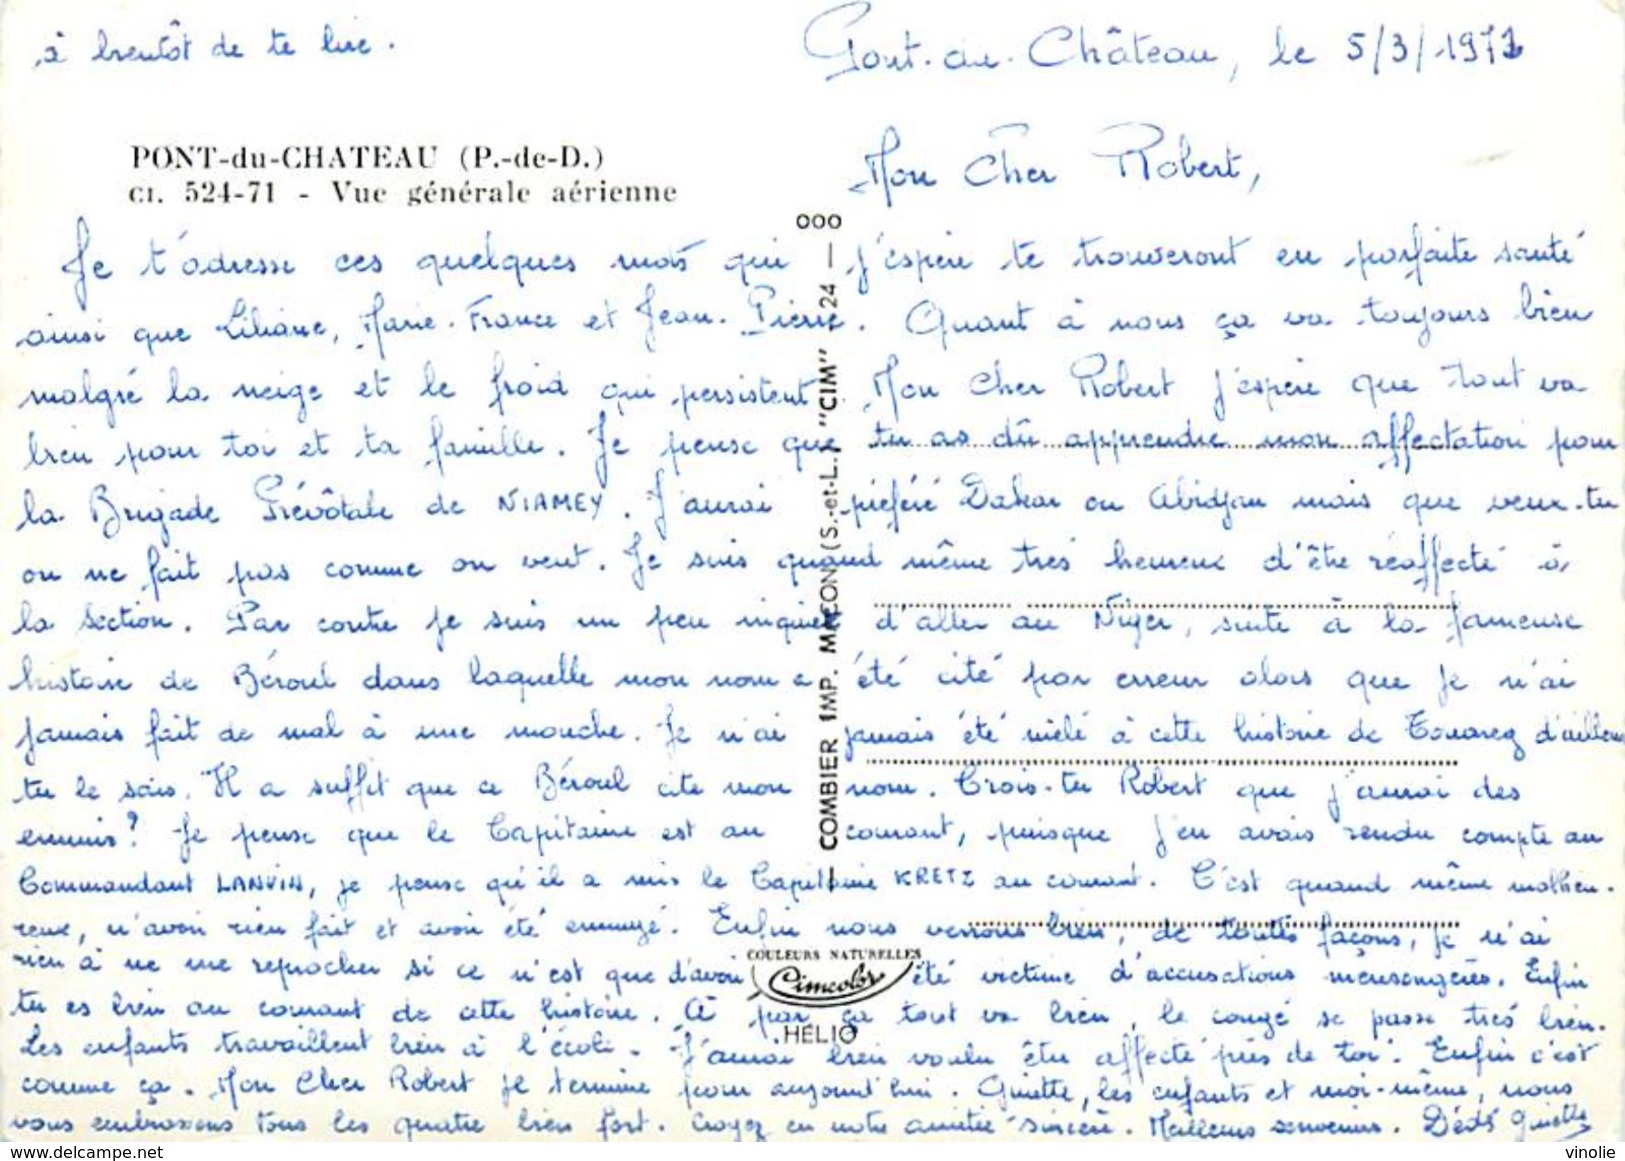 Pont-du-Château, le 5/3/1971
Mon Cher Robert,
Je t'adresse ces quelques mots qui j'espère te trouveront en parfaite santé
ainsi que Liliane, Marie-France et Jean-Pierre. Quant à nous ça va toujours bien
malgré la neige et le froid qui persistent. Mon Cher Robert j'espère que tout va
bien pour toi et ta famille. Je pense que tu as dû apprendre mon affectation pour
la Brigade Prévôtale de NIAMEY. J'aurai préféré Dakar ou Abidjan mais que veux-tu
on ne fait pas comme on veut. Je suis quand même très heureux d'être réaffecté à
la section. Par contre je suis un peu inquiet d'aller au Niger, suite à la fameuse
histoire de Béroul dans laquelle mon nom a été cité par erreur alors que je n'ai
jamais fait de mal à une mouche. Je n'ai jamais été mêlé à cette histoire de Touareg d'ailleurs
tu le sais. Il a suffit que ce Béroul cite mon nom. Crois-tu Robert que j'aurai des
ennuis? Je pense que le Capitaine est au courant, puisque j'en avais rendu compte au
Commandant LANVIN, je pense qu'il a mis le Capitaine KRETZ au courant. C'est quand même malheu-
reux, n'avoir rien fait et avoir été ennuyé. Enfin nous verrons bien, de toutes façons, je n'ai
rien à ne me reprocher si ce n'est que d'avoir été victime d'accusations mensongères. Enfin
tu es bien au courant de cette histoire. A par ça tout va bien, le congé se passe très bien.
Les enfants travaillent bien à l'école. J'aurai bien voulu être affecté près de toi. Enfin c'est
comme ça. Mon Cher Robert je termine pour aujourd'hui. Guiette, les enfants et moi-même, nous
vous embrassons tous les quatre bien fort. Croyez en notre amitié sincère. Meilleurs souvenirs. Dédé Guiette
à bientôt de te lire.
PONT-du-CHATEAU (P.-de-D.)
CI. 524-71 - Vue générale aérienne
COMBIER IMP. MACON (S.-et-L.) "CIM" 24 — 000
COULEURS NATURELLES
Cimcolor
HÉLIO
delcampe.net
vinolie